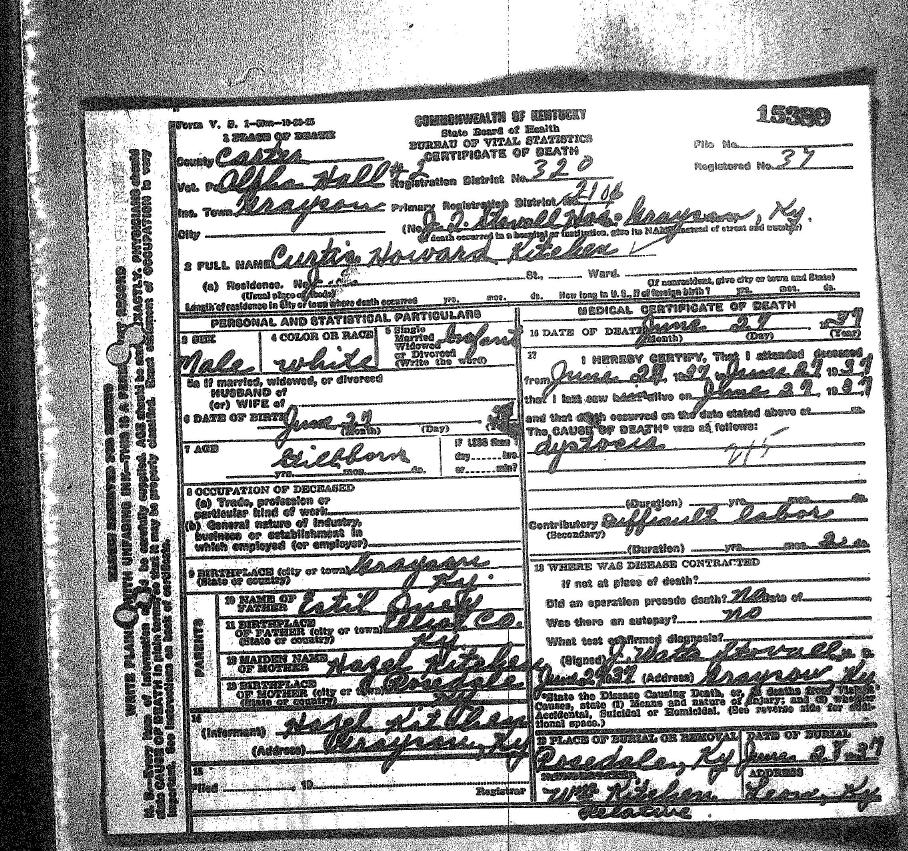 Form V. S. 1
COMMONWEALTH OF KENTUCKY
State Board of Health
BUREAU OF VITAL STATISTICS
CERTIFICATE OF DEATH
15389
File No.
Registered No. 37
1 PLACE OF DEATH
County Carter
Vot. Pct. Alpha Hall #2 Registration District No. 320
Inc. Town Grayson Primary Registration District No. 2106
City (No. J. Q. Stovall Hos. Grayson, Ky.
(If death occurred in a hospital or institution, give its NAME instead of street and number)
2 FULL NAME Curtis Howard Kitchen
(a) Residence. No. St., Ward.
(Usual place of abode) (If nonresident, give city or town and State)
Length of residence in city or town where death occurred yrs. mos. ds. How long in U. S., if of foreign birth? yrs. mos. ds.
PERSONAL AND STATISTICAL PARTICULARS
3 SEX
Male
4 COLOR OR RACE
white
5 Single
Married
Widowed
or Divorced
(Write the word)
Infant
5a If married, widowed, or divorced
HUSBAND of
(or) WIFE of
6 DATE OF BIRTH June 27
(Month) (Day)
7 AGE
Stillborn
yrs. mos. ds.
If LESS than 1
day hrs.
or min?
8 OCCUPATION OF DECEASED
(a) Trade, profession or
particular kind of work
(b) General nature of industry,
business or establishment in
which employed (or employer)
9 BIRTHPLACE (city or town) Grayson
(State or country) Ky.
PARENTS
10 NAME OF
FATHER Estil
11 BIRTHPLACE
OF FATHER (city or town) Elliott Co.
(State or country) Ky
12 MAIDEN NAME
OF MOTHER Hazel Kitchen
13 BIRTHPLACE
OF MOTHER (city or town) Rosedale
(State or country)
14
(Informant) Hazel Kitchen
(Address) Grayson, Ky
15
Filed 19
Registrar
MEDICAL CERTIFICATE OF DEATH
16 DATE OF DEATH June 27 1937
(Month) (Day) (Year)
17
I HEREBY CERTIFY, That I attended deceased
from June 27, 1937 to June 27 1937
that I last saw alive on June 27, 1937
and that death occurred on the date stated above at m.
The CAUSE OF DEATH* was as follows:
dystocia
(Duration) yrs. mos. ds.
Contributory Difficult labor
(Secondary)
(Duration) yrs. mos. ds.
18 WHERE WAS DISEASE CONTRACTED
If not at place of death?
Did an operation precede death? No Date of
Was there an autopsy? no
What test confirmed diagnosis?
(Signed) J. Watts Stovall M. D.
June 29 37 (Address) Grayson, Ky
*State the Disease Causing Death, or, in deaths from Violent
Causes, state (1) Means and nature of Injury; and (2) whether
Accidental, Suicidal or Homicidal. (See reverse side for addi-
tional space.)
19 PLACE OF BURIAL OR REMOVAL
Rosedale, Ky
DATE OF BURIAL
June 28 37
Wm Kitchen
Relative
ADDRESS
Leon, Ky